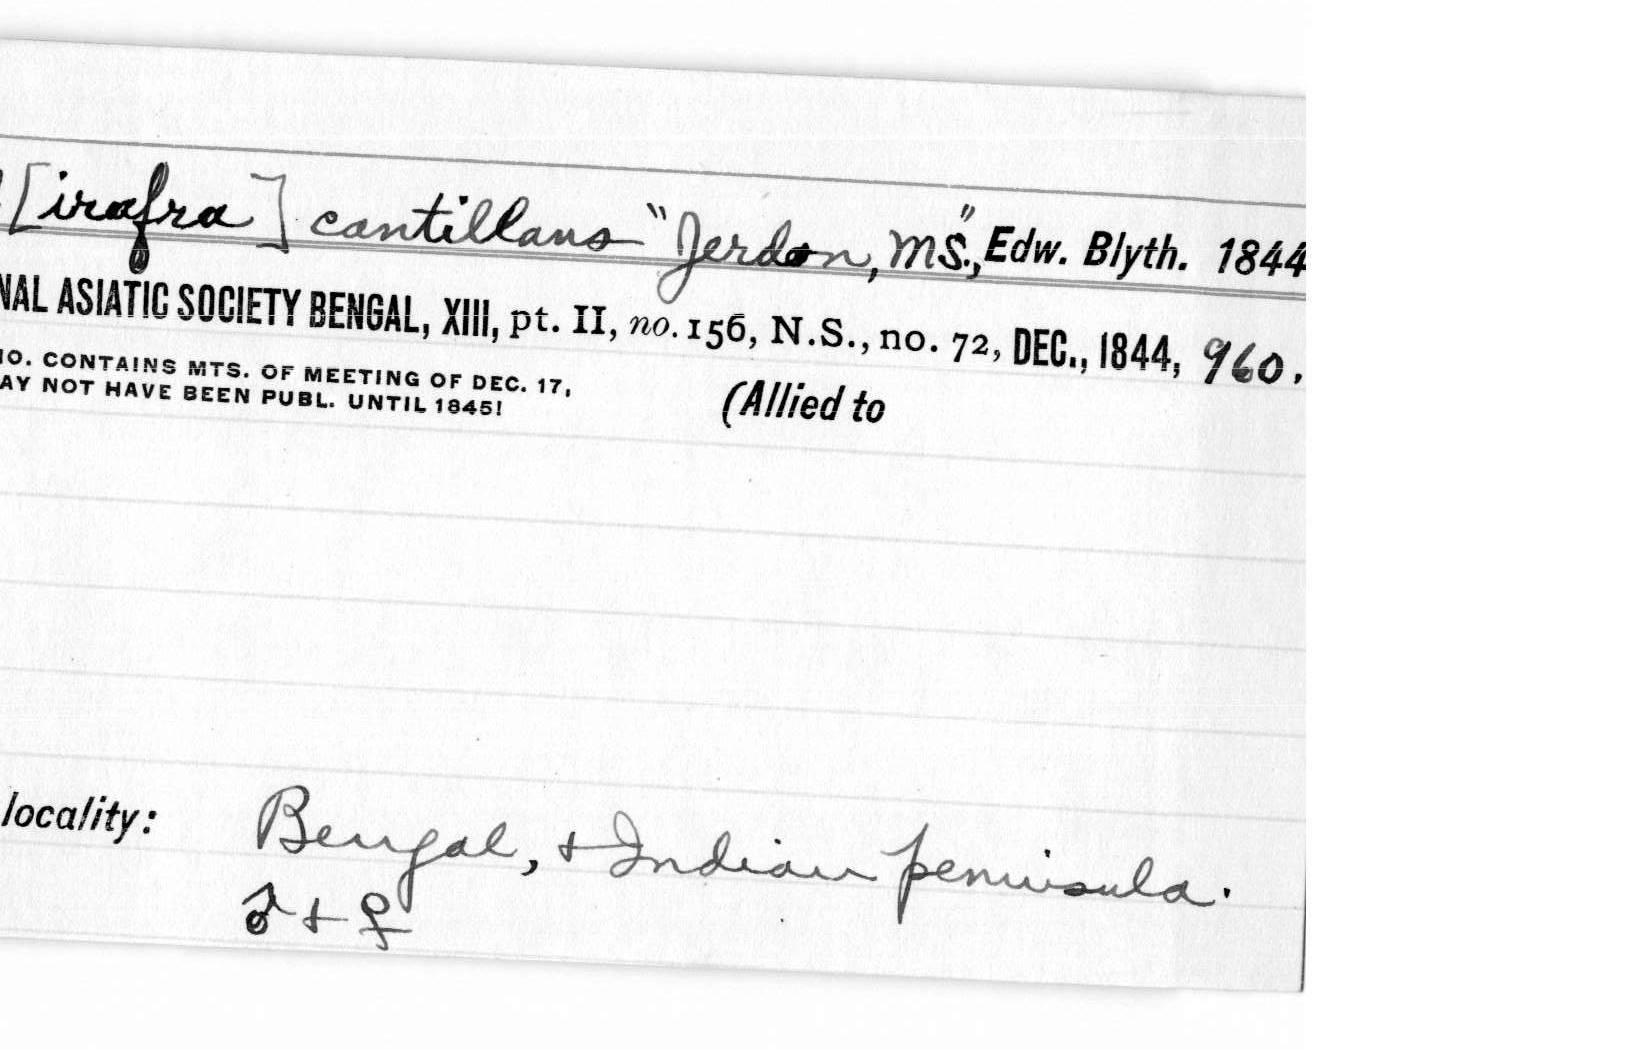 [irafra] cantillans "Jerdon, MS.," Edw. Blyth. 1844
NAL ASIATIC SOCIETY BENGAL, XIII, pt. II, no. 156, N.S., no. 72, DEC., 1844, 960.
NO. CONTAINS MTS. OF MEETING OF DEC. 17,
AY NOT HAVE BEEN PUBL. UNTIL 1845!
(Allied to
locality: Bengal, + Indian peninsula.
♂ + ♀